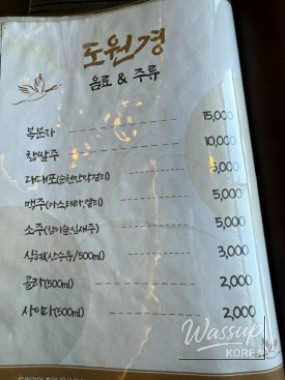 도원경
음료 & 주류
복분자 15,000
찹쌀주 10,000
5,000
맥주(카스테라,결리) 5,000
소주 5,000
식혜(산수유/500ml) 3,000
콜라(500ml) 2,000
사이다(500ml) 2,000
Wassup
KOREA